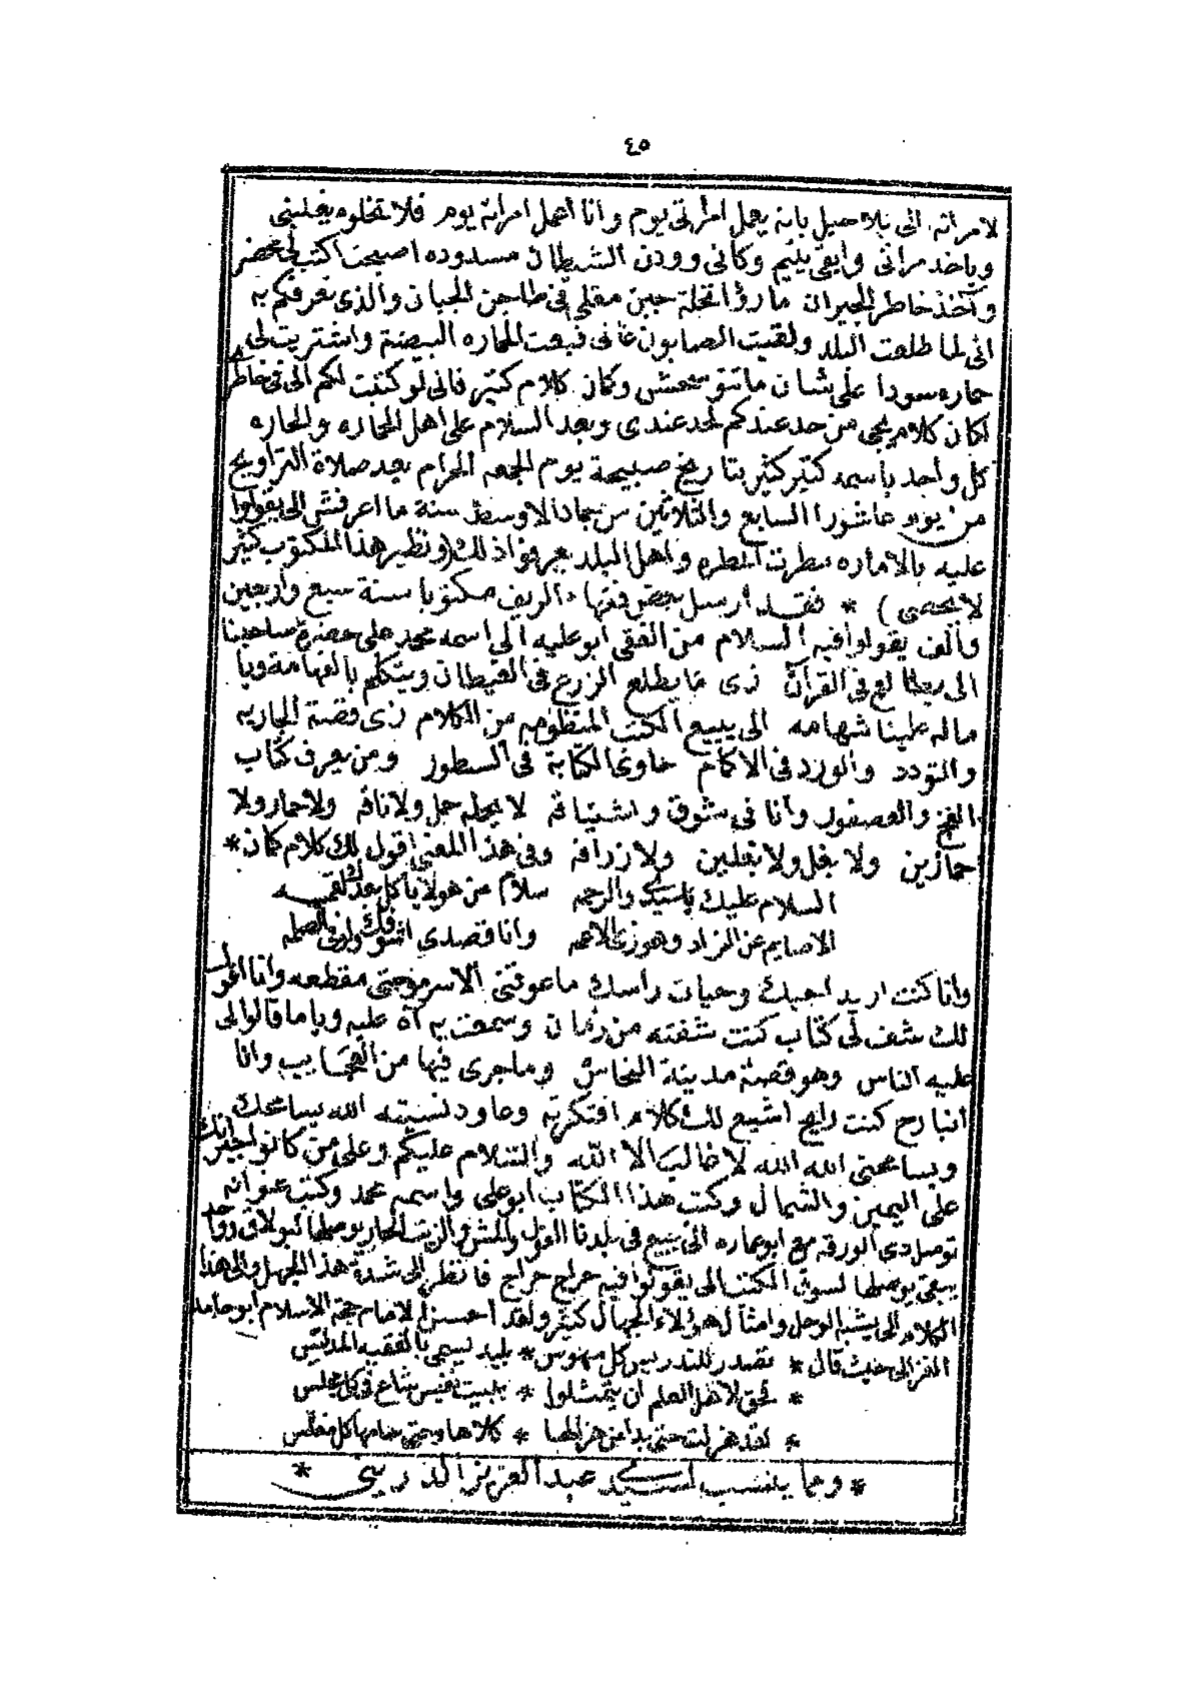 ٤٥
لامراته الى بلا حميل بانه يعمل امراتى يوم وانا اعمل امراته يوم فلا تخلوه يغلبنى
وياخد مراتى وابقى يتيم وكانى وودن الشيطان مسدوده اصبحت اكتب لى محضر
وآخذ خاطر الجيران ما رؤا نحلة جبن مقلى فى طاجن الجبان والذى نعرفكم به
انى لما طلعت البلد ولقيت الصابون غالى فبعت الحماره البيضة واشتريت لى
حماره سودا على شان ما تتوسخش وكمان كلام كتير فانى لو كنت لكم الى فى خاطرى
لكان كلام يجى من حد عندكم لحد عندى وبعد السلام على اهل الحاره والحاره
كل واحد باسمه كتير كثير بتاريخ صبيحة يوم الجمعه الحرام بعد صلاة التراويح
من يوم عاشورا السابع والثلاثين من جماد الاوسط سنة ما اعرفش الى يقولوا
عليه بالاماره مطرت المطره واهل البلد يعرفوا ذلك (ونظير هذا المكتوب كثير
لا يحصى) * فقد ارسل بعض فقهاء الريف مكتوبا سنة سبع واربعين
والف يقولوا فيه السلام من الفقى ابو عليه الى اسمه محمد على حضرة صاحبنا
الى يطالع فى القرآن زى ما يطلع الزرع فى الغيطان ويتكلم بالفهامة ويا
ما له علينا شهامه الى يبيع الكتب المنظومه من الكلام زى قصة الجاريه
والتودد والورد فى الاكمام حاوى الكتابة فى السطور ومن يعرف كتاب
الفخ والعصفور وانا فى شوق واشتياق لا يحمله جمل ولا ناقه ولا حمار ولا
حمارين ولا بغل ولا بغلين ولا زرافه وفى هذا المعنى اقول لك كلام كمان *
السلام عليك يا سيدى والرحمه سلام من هو لا ياكل بعدك لقميه
الا صايم عن الزاد وهو زى الاعمى وانا قصدى اشوفك وادنى الصلمه
وانا كنت اريد اجيك وحيات راسك ما عوقنى الا سرموجتى مقطعه وانا اقول
لك شف لى كتاب كنت شفته من زمان وسمعت به آه عليه وياما قالوا لى
عليه الناس وهو قصة مدينة النحاس وما جرى فيها من العجايب وانا
انبارح كنت رايح اشيع لك كلام افتكرته وعاود نسيته الله يسامحك
ويسامحنى الله الله لا غالب الا الله والسلام عليكم وعلى من كانوا جيرانك
على اليمين والشمال وكتب هذا الكتاب ابو على واسمه محمد وكتب عنوانه
توصل دى الورقه مع ابو عماره الى يبيع فى بلدنا الفول والمش والزيت الحار يوصلها لبولاق وواحد
يبقى يوصلها لسوق الكتب الى يقولوا فيه حراج حراج فانظر الى شدة هذا الجهل والى هذا
الكلام الى يشبه الوحل وامثال هؤلاء الجهال كثير ولقد احسن الامام حجة الاسلام ابو حامد
الغزالى حيث قال * تصدر للتدريس كل مهوس * بليد تسمى بالفقيه المدرس
* فحق لاهل العلم ان يتمثلوا * ببيت نفيس شاع فى كل مجلس
* لقد هزلت حتى بدا من هزالها * كلاها وحتى سامها كل مفلس
* ومما ينسب لسيدى عبد العزيز الدرينى *